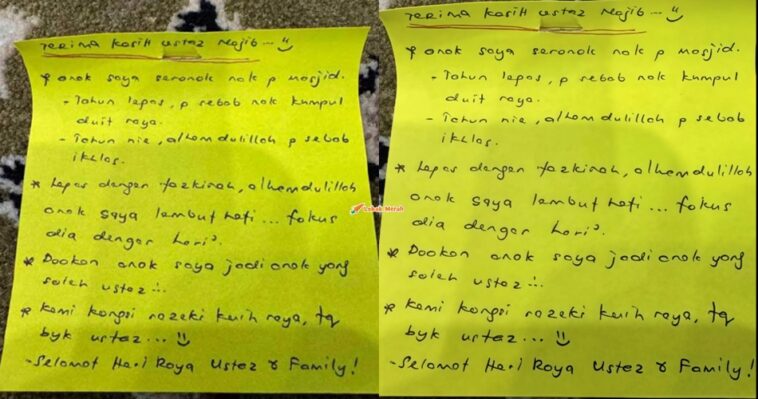 Terima kasih ustaz Najib... ツ
* anak saya seronok nak p masjid.
- Tahun lepas, p sebab nak kumpul
duit raya.
- Tahun nie, alhamdulillah p sebab
ikhlas.
* Lepas dengar tazkirah, alhamdulillah
anak saya lambut hati... fokus
dia dengar hari².
* Doakan anak saya jadi anak yang
soleh ustaz !..
* Kami kongsi razeki kuih raya, tq
byk ustaz... ツ
- Selamat Hari Raya Ustaz & Family!
Lobak Merah
Terima kasih ustaz Najib... ツ
* anak saya seronok nak p masjid.
- Tahun lepas, p sebab nak kumpul
duit raya.
- Tahun nie, alhamdulillah p sebab
ikhlas.
* Lepas dengar tazkirah, alhamdulillah
anak saya lambut hati... fokus
dia dengar hari².
* Doakan anak saya jadi anak yang
soleh ustaz !..
* Kami kongsi razeki kuih raya, tq
byk ustaz... ツ
- Selamat Hari Raya Ustaz & Family!